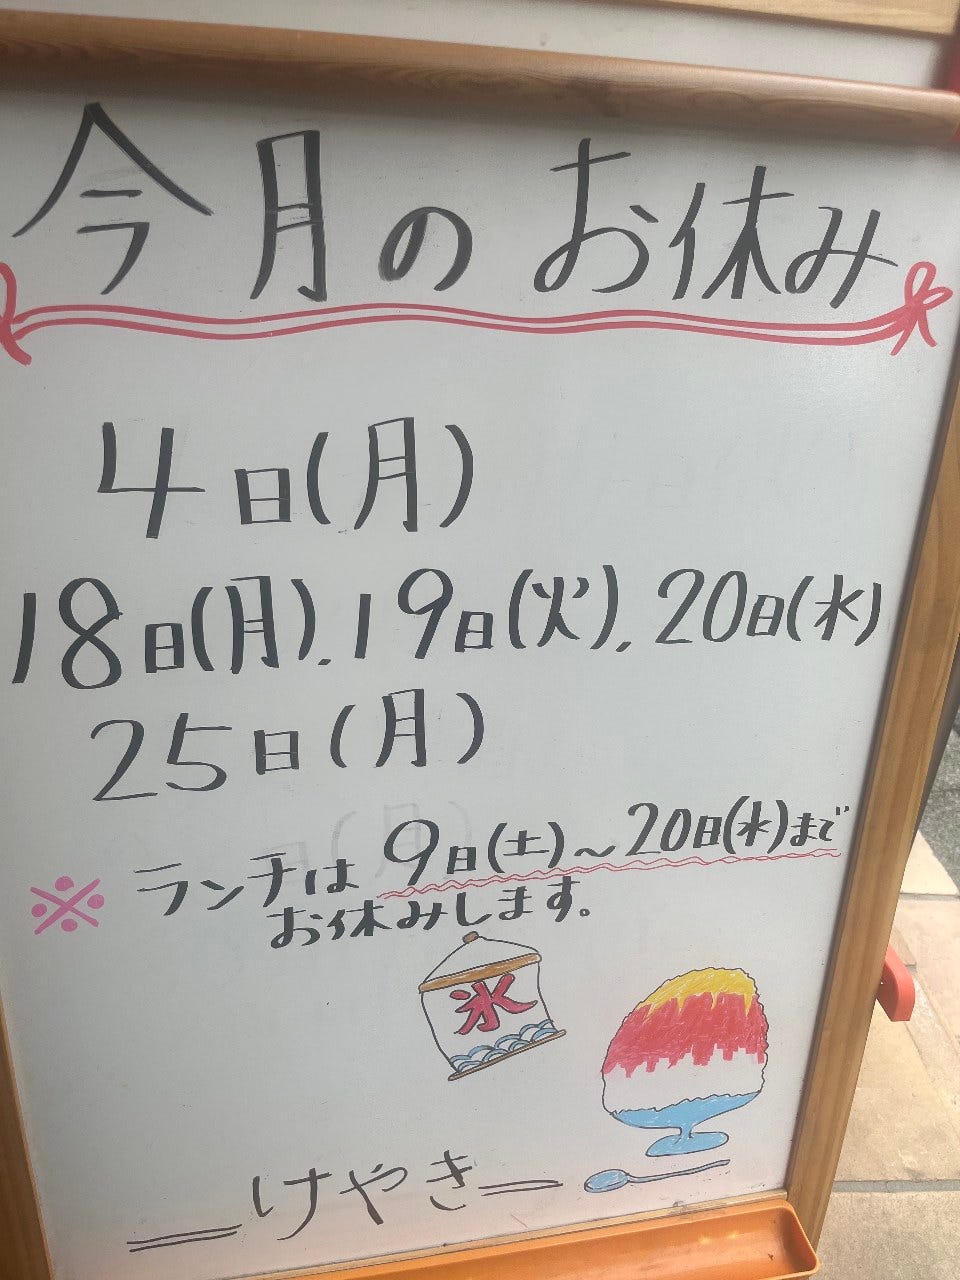 今月のお休み
4日(月)
18日(月).19日(火).20日(水)
25日(月)
※ ランチは 9日(土)~20日(水)まで
お休みします。
氷
けやき